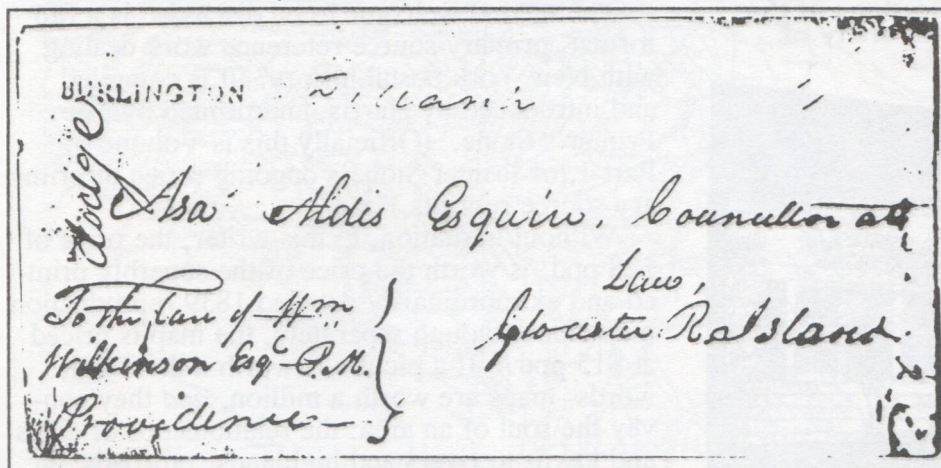 BURLINGTON
Asa Aldis Esquire, Councellor att
Law,
Glocester Rd Island.
To the Care of Wm
Wilkinson Esqr P.M.
Providence